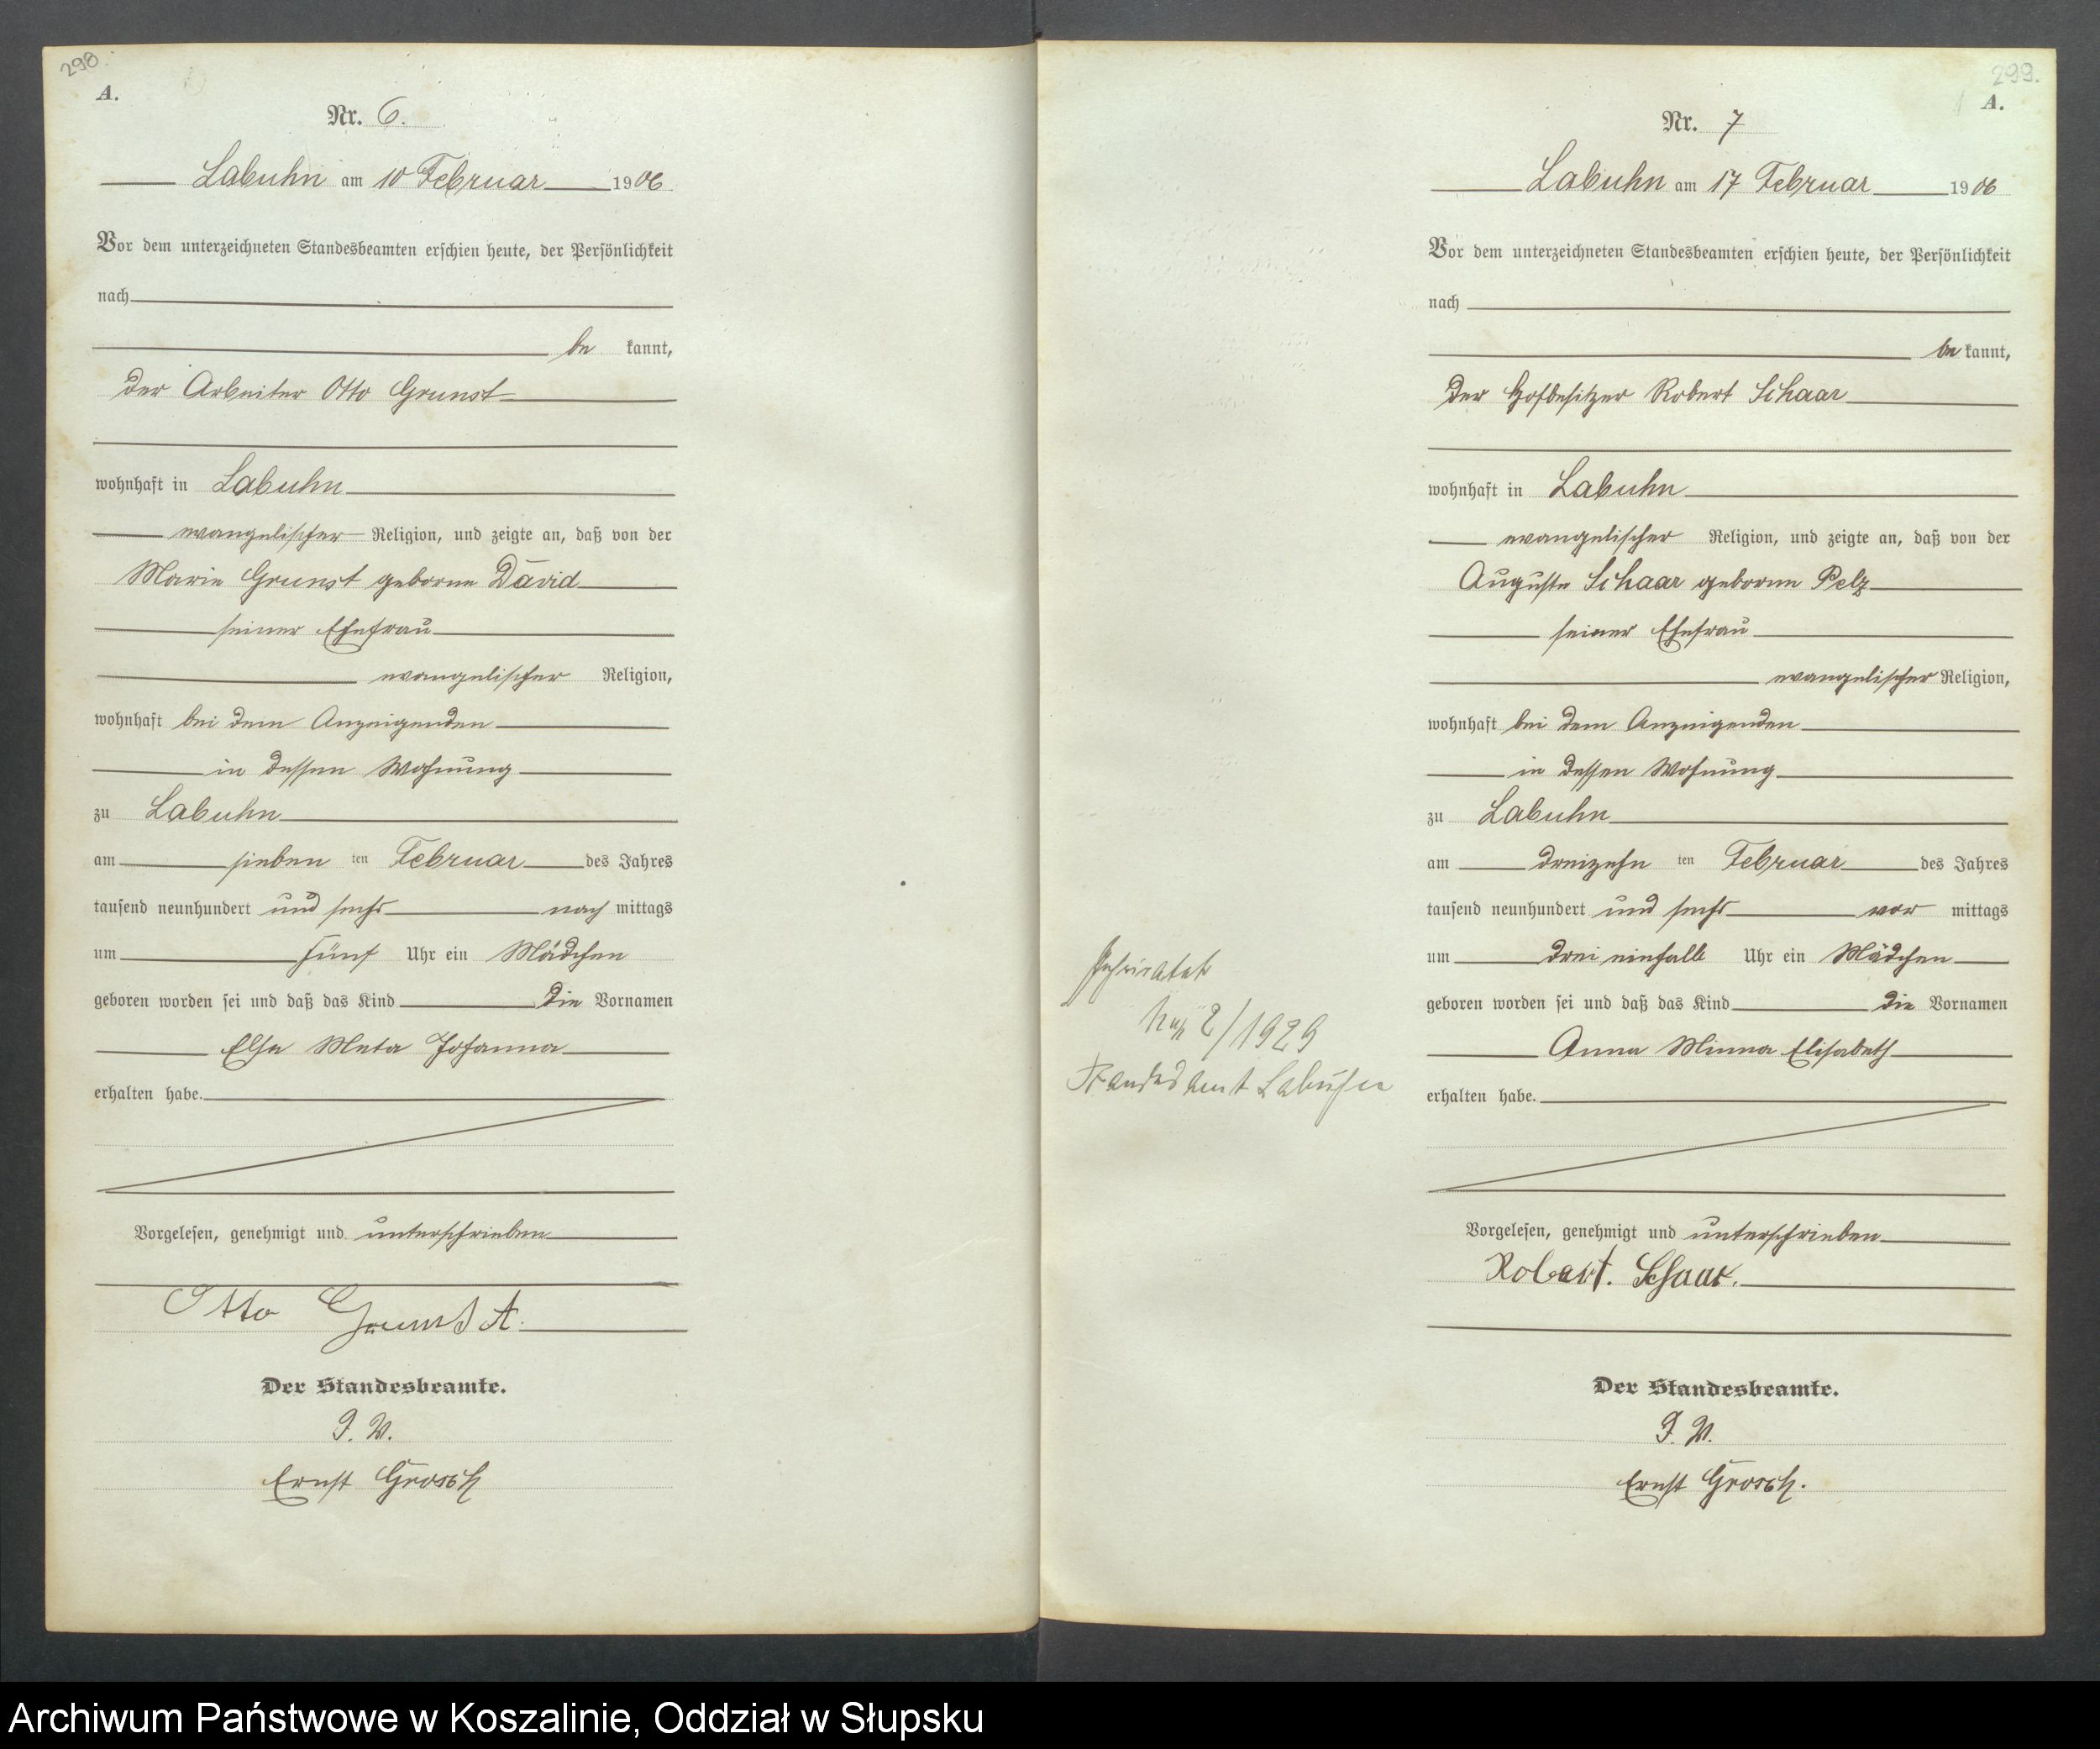 298.
A.
Nr. 6.
Labuhn am 10 Februar 1906
Vor dem unterzeichneten Standesbeamten erschien heute, der Persönlichkeit
nach
be kannt,
der Arbeiter Otto Grunst
wohnhaft in Labuhn
evangelischer Religion, und zeigte an, daß von der
Marie Grunst geborne David
seiner Ehefrau
evangelischer Religion,
wohnhaft bei dem Anzeigenden
in dessen Wohnung
zu Labuhn
am sieben ten Februar des Jahres
tausend neunhundert und sechs nach mittags
um fünf Uhr ein Mädchen
geboren worden sei und daß das Kind die Vornamen
Else Meta Johanna
erhalten habe.
Vorgelesen, genehmigt und unterschrieben
Otto Grunst.
Der Standesbeamte.
J. V.
Ernst Grosch
299.
A.
Nr. 7
Labuhn am 17 Februar 1906
Vor dem unterzeichneten Standesbeamten erschien heute, der Persönlichkeit
nach
be kannt,
der Hofbesitzer Robert Schaar
wohnhaft in Labuhn
evangelischer Religion, und zeigte an, daß von der
Auguste Schaar geborne Pelz
seiner Ehefrau
evangelischer Religion,
wohnhaft bei dem Anzeigenden
in dessen Wohnung
zu Labuhn
am dreizehn ten Februar des Jahres
tausend neunhundert und sechs vor mittags
um drei einhalb Uhr ein Mädchen
geboren worden sei und daß das Kind die Vornamen
Anna Minna Elisabeth
erhalten habe.
Vorgelesen, genehmigt und unterschrieben
Robert. Schaar.
Der Standesbeamte.
J. V.
Ernst Grosch.
Geheiratet
2/1929
Standesamt Labuhn
Archiwum Państwowe w Koszalinie, Oddział w Słupsku